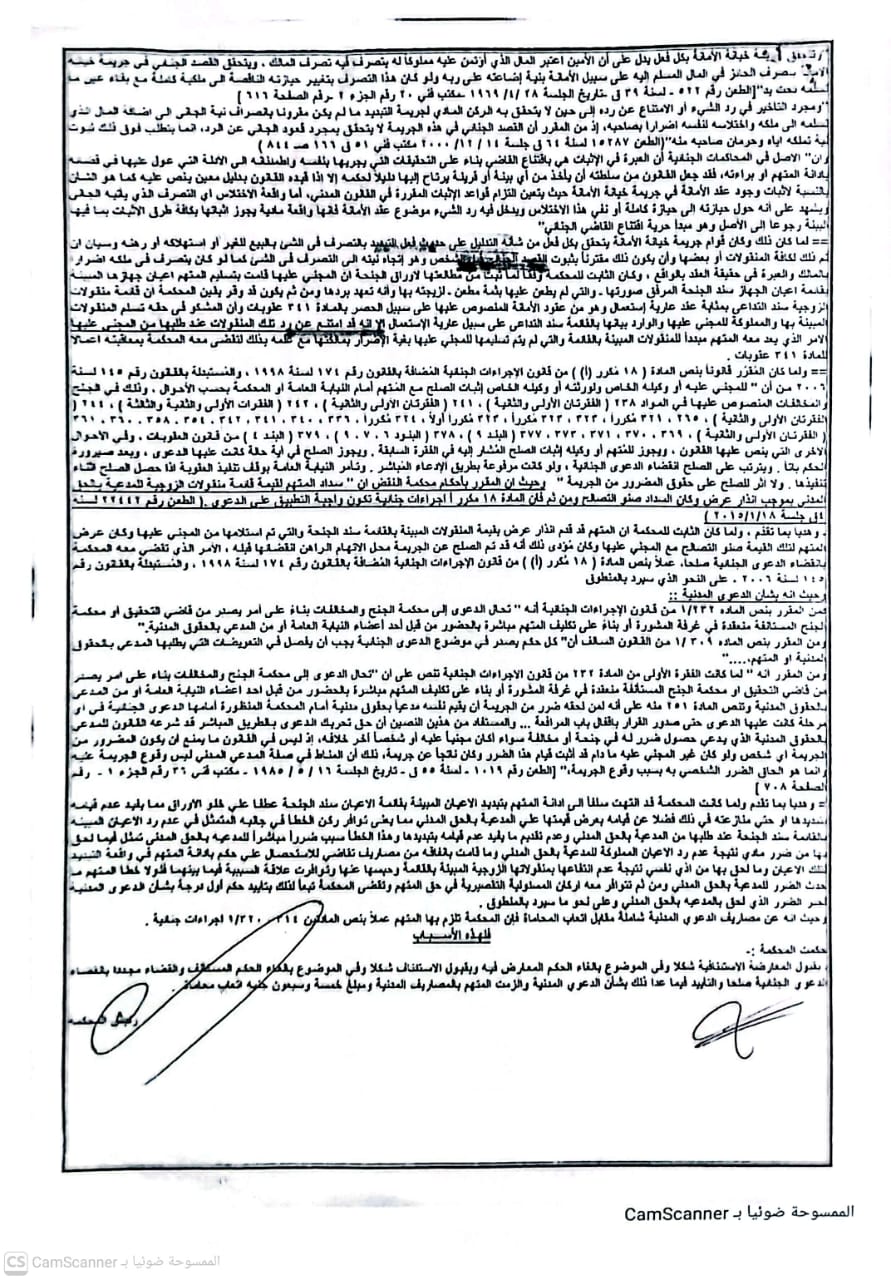 تتحقق جريمة خيانة الأمانة بكل فعل يدل على أن الأمين اعتبر المال الذي أؤتمن عليه مملوكا له يتصرف فيه تصرف المالك ، ويتحقق القصد الجنائي في جريمة خيانة
بتصرف الحائز في المال المسلم إليه على سبيل الأمانة بنية إضاعته على ربه ولو كان هذا التصرف بتغيير حيازته الناقصة الى ملكية كاملة مع بقاء عين ما
تسلمه تحت يد"[الطعن رقم ٥٢٢ - لسنة ٣٩ ق - تاريخ الجلسة ٢٨ /٤/ ١٩٦٩ - مكتب فني ٢٠ رقم الجزء ٢ - رقم الصفحة ٦١٦ ]
"ومجرد التأخير في رد الشيء أو الامتناع عن رده إلى حين لا يتحقق به الركن المادي لجريمة التبديد ما لم يكن مقرونا بانصراف نية الجاني الى اضافة المال الذي
تسلمه الى ملكه واختلاسه لنفسه اضرارا بصاحبه، إذ من المقرر أن القصد الجنائي في هذه الجريمة لا يتحقق بمجرد قعود الجاني عن الرد، انما يتطلب فوق ذلك ثبوت
نية تملكه اياه وحرمان صاحبه منه"(الطعن رقم ١٥٢٨٧ لسنة ٦٤ ق جلسة ١٤ / ١٢ / ٢٠٠٠ مكتب فني ٥١ ق ١٦٦ صـ ٨٤٤ )
وان" الاصل في المحاكمات الجنائية أن العبرة في الإثبات هي باقتناع القاضي بناء على التحقيقات التي يجريها بنفسه واطمئنانه الى الادلة التي عول عليها في قضائه
بإدانة المتهم أو براءته، فقد جعل القانون من سلطته أن يأخذ من أي بينة أو قرينة يرتاح إليها دليلاً لحكمه إلا إذا قيده القانون بدليل معين ينص عليه كما هو الشان
بالنسبة لاثبات وجود عقد الأمانة في جريمة خيانة الأمانة حيث يتعين التزام قواعد الإثبات المقررة في القانون المدني، أما واقعة الاختلاس اي التصرف الذي يأتيه الجاني
ويشهد على أنه حول حيازته إلى حيازة كاملة أو نفي هذا الاختلاس ويدخل فيه رد الشيء موضوع عقد الأمانة فانها واقعة مادية يجوز اثباتها بكافة طرق الاثبات بما فيها
البينة رجوعا إلى الأصل وهو مبدأ حرية اقتناع القاضي الجنائي"
== لما كان ذلك وكان قوام جريمة خيانة الأمانة يتحقق بكل فعل من شأنه التدليل على حدوث فعل التبديد بالتصرف في الشئ بالبيع للغير أو إستهلاكه أو رهنه وسيان ان
تم ذلك لكافة المنقولات أو بعضها وأن يكون ذلك مقترناً بثبوت القصد الجنائي الشخص وهو إتجاه نيته الى التصرف في الشئ كما لو كان يتصرف في ملكه اضرارا
بالمالك والعبرة في حقيقة العقد بالواقع ، وكان الثابت للمحكمة وفقا لما ثبتا من مطالعتها لاوراق الجنحة ان المجني عليها قامت بتسليم المتهم اعيان جهازها المبينة
بقائمة اعيان الجهاز سند الجنحة المرفق صورتها - والتي لم يطعن عليها بثمة مطعن - لزيجته بها وأنه تعهد بردها ومن ثم يكون قد وقر بيقين المحكمة ان قائمة منقولات
الزوجية سند التداعي بمثابة عقد عارية إستعمال وهو من عقود الأمانة المنصوص عليها على سبيل الحصر بالمادة ٣٤١ عقوبات وأن المشكو في حقه تسلم المنقولات
المبينة بها والمملوكة للمجني عليها والوارد بياتها بالقائمة سند التداعي على سبيل عارية الإستعمال الا انه قد امتنع عن رد تلك المنقولات عند طلبها من المجني عليها
الامر الذي يعد معه المتهم مبتدأ للمنقولات المبينة بالقائمة والتي لم يتم تسليمها للمجني عليها بغية الإضرار بمالكتها مع علمه بذلك لتقضى معه المحكمة بمعاقبته اعمالا
للمادة ٣٤١ عقوبات .
== ولما كان المُقرّر قانوناً بنص المادة ( ١٨ مُكرر (أ ) ) من قانون الإجراءات الجنائية المُضافة بالقانون رقم ١٧٤ لسنة ١٩٩٨ ، والمُستبدلة بالقانون رقم ١٤٥ لسنة
٢٠٠٦ من أن " للمجني عليه أو وكيله الخاص ولورثته أو وكيله الخاص إثبات الصلح مع المُتهم أمام النيابة العامة أو المحكمة بحسب الأحوال ، وذلك في الجنح
والمخالفات المنصوص عليها في المواد ٢٣٨ ( الفقرتان الأولى والثانية ) ، ٢٤١ ( الفقرتان الأولى والثانية ) ، ٢٤٢ ( الفقرات الأولى والثانية والثالثة ) ، ٢٤٤ (
الفقرتان الأولى والثانية ) ، ٢٦٥ ، ٣٢١ مُكرراً ، ٣٢٣ ، ٣٢٣ مُكرراً ، ٣٢٣ مُكرراً أولاً ، ٣٢٤ مُكرراً ، ٣٣٦ ، ٣٤٠ ، ٣٤١ ، ٣٤٢ ، ٣٥٤ ، ٣٥٨ ، ٣٦٠ ، ٣٦١
( الفقرتان الأولى والثانية ) ، ٣٦٩ ، ٣٧٠ ، ٣٧١ ، ٣٧٣ ، ٣٧٧ ( البند ٩ ) ، ٣٧٨ ( البنود ٦ ، ٧ ، ٩ ) ، ٣٧٩ ( البند ٤ ) من قانون العقوبات ، وفي الأحوال
الأخرى التي ينص عليها القانون ، ويجوز للمُتهم أو وكيله إثبات الصلح المُشار إليه في الفقرة السابقة . ويجوز الصلح في أية حالة كانت عليها الدعوى ، وبعد صيرورة
الحكم باتاً . ويترتب على الصلح انقضاء الدعوى الجنائية ، ولو كانت مرفوعة بطريق الإدعاء المُباشر . وتأمر النيابة العامة بوقف تنفيذ العقوبة اذا حصل الصلح اثناء
تنفيذها . ولا اثر للصلح على حقوق المضرور من الجريمة " وحيث ان المقرر بأحكام محكمة النقض ان " سداد المتهم لقيمة قائمة منقولات الزوجية للمدعية بالحق
المدني بموجب انذار عرض وكان السداد صنو التصالح ومن ثم فان المادة ١٨ مكرر أ اجراءات جنائية تكون واجبة التطبيق على الدعوى .( الطعن رقم ٢٢٤٤٢ لسنة
٤ق جلسة ٢٠١٥/١/١٨ )
. وهديا بما تقدم ، ولما كان الثابت للمحكمة ان المتهم قد قدم انذار عرض بقيمة المنقولات المبينة بالقائمة سند الجنحة والتي تم استلامها من المجني عليها وكان عرض
المتهم لتلك القيمة صنو التصالح مع المجني عليها وكان مُؤدى ذلك أنه قد تم الصلح عن الجريمة محل الاتهام الراهن انقضائها قبله ، الأمر الذي تقضي معه المحكمة
بانقضاء الدعوى الجنائية صلحا، عملاً بنص المادة ( ١٨ مُكرر (أ) ) من قانون الإجراءات الجنائية المُضافة بالقانون رقم ١٧٤ لسنة ١٩٩٨ ، والمُستبدلة بالقانون رقم
١٤٥ لسنة ٢٠٠٦ . على النحو الذي سيرد بالمنطوق
وحيث انه بشأن الدعوى المدنية ::
فمن المقرر بنص المادة ١/٢٣٢ من قانون الإجراءات الجنائية أنه " تحال الدعوى إلى محكمة الجنح والمخالفات بناءً على أمر يصدر من قاضي التحقيق أو محكمة
الجنح المستأنفة منعقدة في غرفة المشورة أو بناءً على تكليف المتهم مباشرة بالحضور من قبل أحد أعضاء النيابة العامة أو من المدعي بالحقوق المدنية."
ومن المقرر بنص المادة ١/٣٠٩ من القانون السالف أن" كل حكم يصدر في موضوع الدعوى الجنائية يجب أن يفصل في التعويضات التي يطلبها المدعي بالحقوق
المدنية أو المتهم،...."
ومن المقرر انه " لما كانت الفقرة الأولى من المادة ٢٣٢ من قانون الإجراءات الجنائية تنص على ان "تحال الدعوى إلى محكمة الجنح والمخالفات بناء على امر يصدر
من قاضي التحقيق او محكمة الجنح المستأنفة منعقدة في غرفة المشورة أو بناء على تكليف المتهم مباشرة بالحضور من قبل احد اعضاء النيابة العامة او من المدعي
بالحقوق المدنية وتنص المادة ٢٥١ منه على أنه لمن لحقه ضرر من الجريمة ان يقيم نفسه مدعياً بحقوق مدنية أمام المحكمة المنظورة أمامها الدعوى الجنائية في أي
مرحلة كانت عليها الدعوى حتى صدور القرار بإقفال باب المرافعة ... والمستفاد من هذين النصين أن حق تحريك الدعوى بالطريق المباشر قد شرعه القانون للمدعي
بالحقوق المدنية الذي يدعي حصول ضرر له في جنحة أو مخالفة سواء كان مجنياً عليه أو شخصاً آخر خلافه، إذ ليس في القانون ما يمنع ان يكون المضرور من
الجريمة أي شخص ولو كان غير المجني عليه ما دام قد أثبت قيام هذا الضرر وكان ناتجاً عن جريمة، ذلك أن المناط في صفة المدعي المدني ليس وقوع الجريمة عليه
وانما هو إلحاق الضرر الشخصي به بسبب وقوع الجريمة،" [الطعن رقم ١٠١٩ - لسنة ٥٥ ق - تاريخ الجلسة ١٦ / ٥ / ١٩٨٥ - مكتب فني ٣٦ رقم الجزء ١ - رقم
الصفحة ٧٠٨ ]
= وهديا بما تقدم ولما كانت المحكمة قد انتهت سلفاً الى ادانة المتهم بتبديد الاعيان المبينة بقائمة الاعيان سند الجنحة عطفا على خلو الاوراق مما يفيد عدم قيامه
بتبديدها او حتى منازعته في ذلك فضلا عن قيامه بعرض قيمتها على المدعية بالحق المدني مما يعنى توافر ركن الخطأ في جانبه المتمثل في عدم رد الاعيان المبينة
بالقائمة سند الجنحة عند طلبها من المدعية بالحق المدني وعدم تقديم ما يفيد عدم قيامه بتبديدها وهذا الخطأ سبب ضرراً مباشراً للمدعيه بالحق المدنى تمثل فيما لحق
بها من ضرر مادي نتيجة عدم رد الاعيان المملوكة للمدعية بالحق المدني وما قامت بانفاقه من مصاريف تقاضي للاستحصال على حكم بادانة المتهم في واقعة التبديد
لتلك الاعيان وما لحق بها من اذي نفسي نتيجة عدم انتفاعها بمنقولاتها الزوجية المبينة بالقائمة وحبسها عنها وتوافرت علاقة السببية فيما بينهما فلولا خطأ المتهم ما
حدث الضرر للمدعية بالحق المدني ومن ثم تتوافر معه اركان المسئولية التقصيرية في حق المتهم وتقضى المحكمة تبعاً لذلك بتأييد حكم أول درجة بشأن الدعوى المدنية
لجبر الضرر الذي لحق بالمدعيه بالحق المدني وعلى نحو ما سيرد بالمنطوق .
وحيث انه عن مصاريف الدعوى المدنية شاملة مقابل اتعاب المحاماة فإن المحكمة تلزم بها المتهم عملاً بنص المادتين ٣١٤ ، ١/٣٢٠ اجراءات جنائية .
فلهذه الأسباب
حكمت المحكمة :-
بقبول المعارضة الاستئنافية شكلا وفى الموضوع بالغاء الحكم المعارض فيه وبقبول الاستئناف شكلا وفى الموضوع بالغاء الحكم المستأنف والقضاء مجددا بانقضاء
الدعوى الجنائية صلحا والتأييد فيما عدا ذلك بشأن الدعوى المدنية والزمت المتهم بالمصاريف المدنية ومبلغ خمسة وسبعون جنيه اتعاب محاماة.
رئيس المحكمة
الممسوحة ضوئيا بـ CamScanner
CS CamScanner الممسوحة ضوئيا بـ